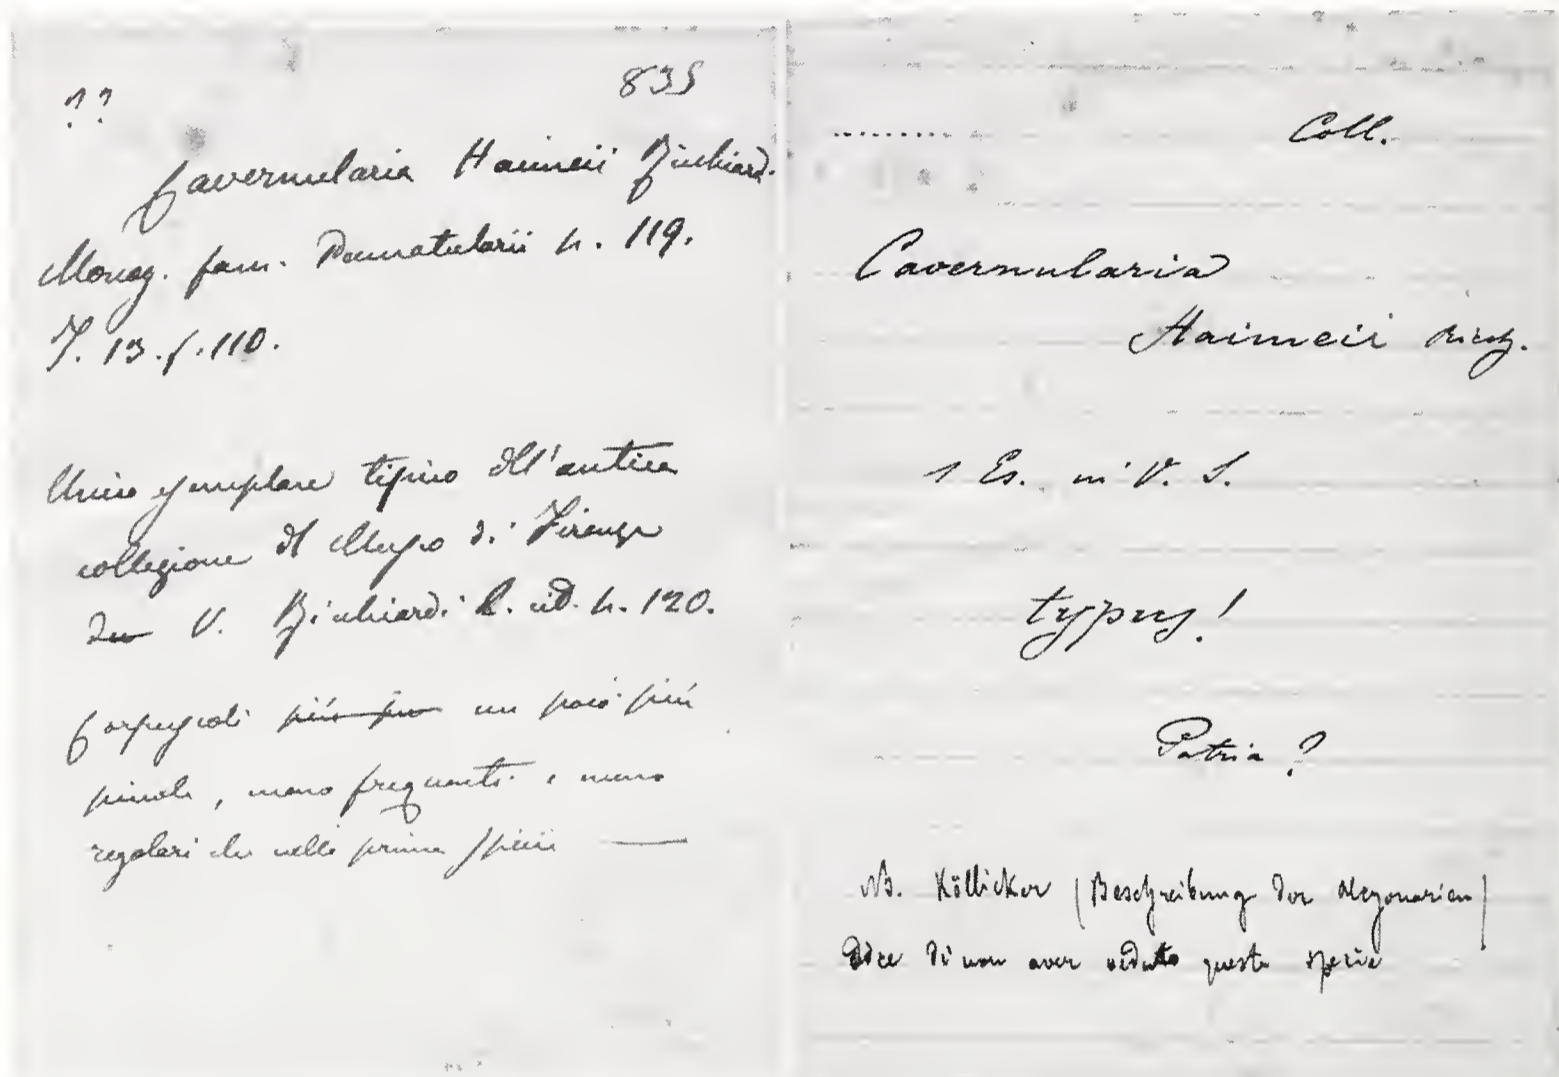 ??
835
Cavernularia Haimeii Richiard.
Monog. fam. Pennatularii p. 119.
T. 13. f. 110.
Unico esemplare tipico dell'antica
collezione del Museo di Firenze
V. Richiardi l. cit. p. 120.
più un poco più
piccoli, meno frequenti e meno
regolari che nelle prime specie
Coll.
Cavernularia
Haimeii Rich.
1 Es. in V. S.
typus!
Patria?
NB. Köllicker (Beschreibung der Alcyonarien)
Dice di non aver veduto questa specie